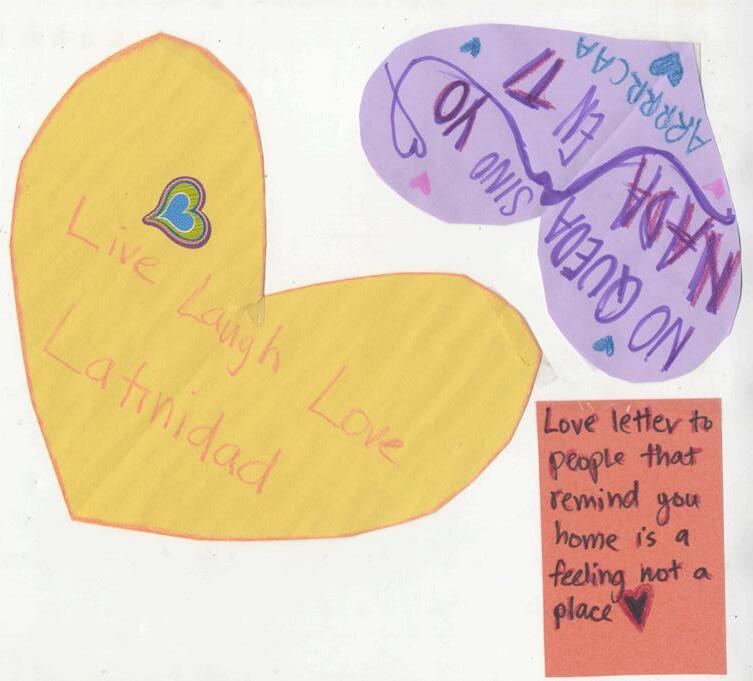 Live Laugh Love
Latinidad
NO QUEDA
NADA
EN TI
SINO YO
ARRRRCAA
Love letter to
people that
remind you
home is a
feeling not a
place